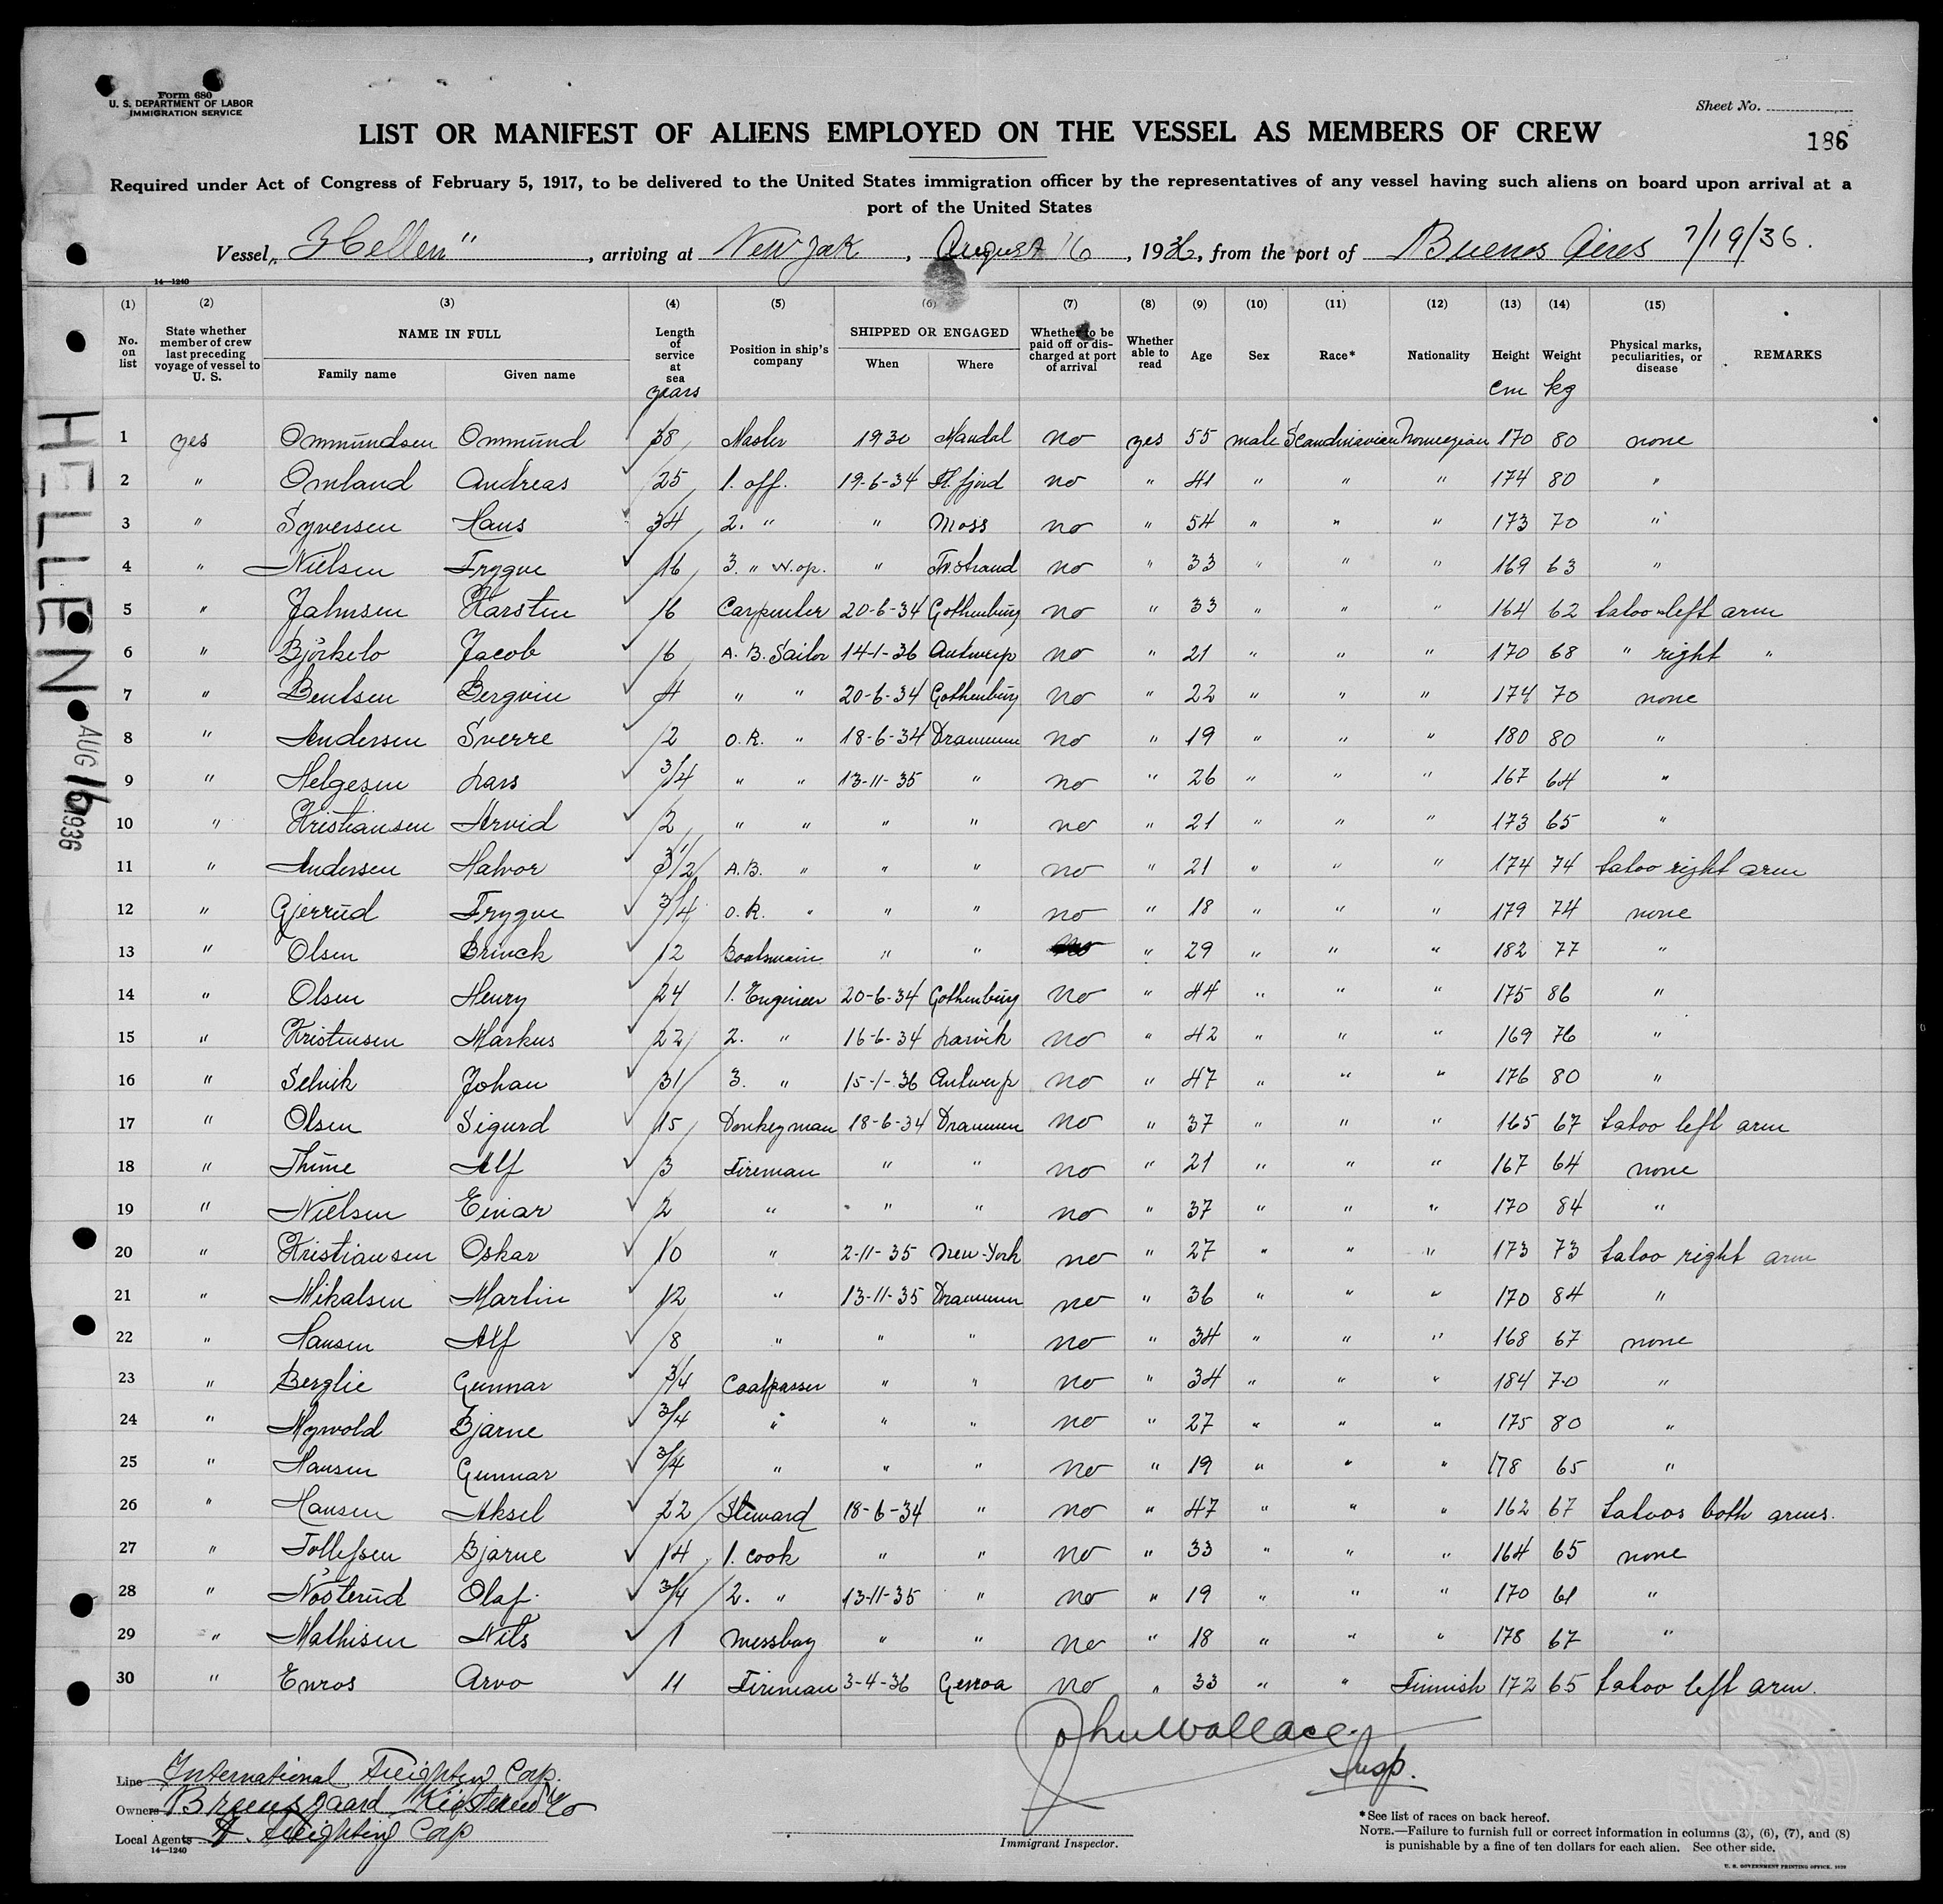 Form 680
U. S. DEPARTMENT OF LABOR
IMMIGRATION SERVICE
Sheet No.
LIST OR MANIFEST OF ALIENS EMPLOYED ON THE VESSEL AS MEMBERS OF CREW
186
Required under Act of Congress of February 5, 1917, to be delivered to the United States immigration officer by the representatives of any vessel having such aliens on board upon arrival at a
port of the United States
Vessel „Hellen", arriving at New York, August 16, 1936, from the port of Buenos Aires 7/19/36.
14—1240
(1) (2) (3) (4) (5) (6) (7) (8) (9) (10) (11) (12) (13) (14) (15)
No. on list State whether member of crew last preceding voyage of vessel to U. S. NAME IN FULL Family name Given name Length of service at sea years Position in ship's company SHIPPED OR ENGAGED When Where Whether to be paid off or discharged at port of arrival Whether able to read Age Sex Race* Nationality Height cm Weight kg Physical marks, peculiarities, or disease REMARKS
1 yes Ommundsen Ommund 38 Master 1930 Mandal no yes 55 male Scandinavian Norwegian 170 80 none
2 " Omland Andreas 25 1. off. 19-6-34 fjord no " 41 " " " 174 80 "
3 " Syversen Hans 34 2. " " Moss no " 54 " " " 173 70 "
4 " Nielsen Trygve 16 3. " w.op. " Tv.strand no " 33 " " " 169 63 "
5 " Jahnsen Karsten 16 Carpenter 20-6-34 Gothenburg no " 33 " " " 164 62 tatoo left arm
6 " Björkelo Jacob 6 A. B. Sailor 14-1-36 Antwerp no " 21 " " " 170 68 " right "
7 " Bentsen Bergvin 4 " " 20-6-34 Gothenburg no " 22 " " " 174 70 none
8 " Andersen Sverre 2 O. R. " 18-6-34 Drammen no " 19 " " " 180 80 "
9 " Helgesen Lars 3/4 " " 13-11-35 " no " 26 " " " 167 64 "
10 " Kristiansen Arvid 2 " " " " no " 21 " " " 173 65 "
11 " Andersen Halvor 3 1/2 A.B. " " " no " 21 " " " 174 74 tatoo right arm
12 " Gjerrud Trygve 3/4 O.R. " " " no " 18 " " " 179 74 none
13 " Olsen Brinck 12 Boatsmain " " no " 29 " " " 182 77 "
14 " Olsen Henry 24 1. Engineer 20-6-34 Gothenburg no " 44 " " " 175 86 "
15 " Kristensen Markus 22 2. " 16-6-34 Larvik no " 42 " " " 169 76 "
16 " Selvik Johan 31 3. " 15-1-36 Antwerp no " 47 " " " 176 80 "
17 " Olsen Sigurd 15 Donkeyman 18-6-34 Drammen no " 37 " " " 165 67 tatoo left arm
18 " Thime Alf 3 Fireman " " no " 21 " " " 167 64 none
19 " Nielsen Einar 2 " " " no " 37 " " " 170 84 "
20 " Kristiansen Oskar 10 " 2-11-35 New-York no " 27 " " " 173 73 tatoo right arm
21 " Mikalsen Martin 12 " 13-11-35 Drammen no " 36 " " " 170 84 "
22 " Hansen Alf 8 " " " no " 34 " " " 168 67 none
23 " Berglie Gunnar 3/4 Coalpasser " " no " 34 " " " 184 70 "
24 " Myrvold Bjarne 3/4 " " " no " 27 " " " 175 80 "
25 " Hansen Gunnar 3/4 " " " no " 19 " " " 178 65 "
26 " Hansen Aksel 22 Steward 18-6-34 " no " 47 " " " 162 67 tatoos both arms.
27 " Tollefsen Bjarne 14 1. cook " " no " 33 " " " 164 65 none
28 " Nösterud Olaf 3/4 2. " 13-11-35 " no " 19 " " " 170 61 "
29 " Mathisen Nils 1 messboy " " no " 18 " " " 178 67 "
30 " Enros Arvo 11 Fireman 3-4-36 Genoa no " 33 " " Finnish 172 65 tatoo left arm.
HELLEN AUG 16 1936
John Wallace
Insp.
Line International Freighting Corp.
Owners Bruusgaard Kiøsterud
Local Agents I. Freighting Corp
14—1240
Immigrant Inspector.
*See list of races on back hereof.
NOTE.—Failure to furnish full or correct information in columns (3), (6), (7), and (8)
is punishable by a fine of ten dollars for each alien. See other side.
U. S. GOVERNMENT PRINTING OFFICE, 1929